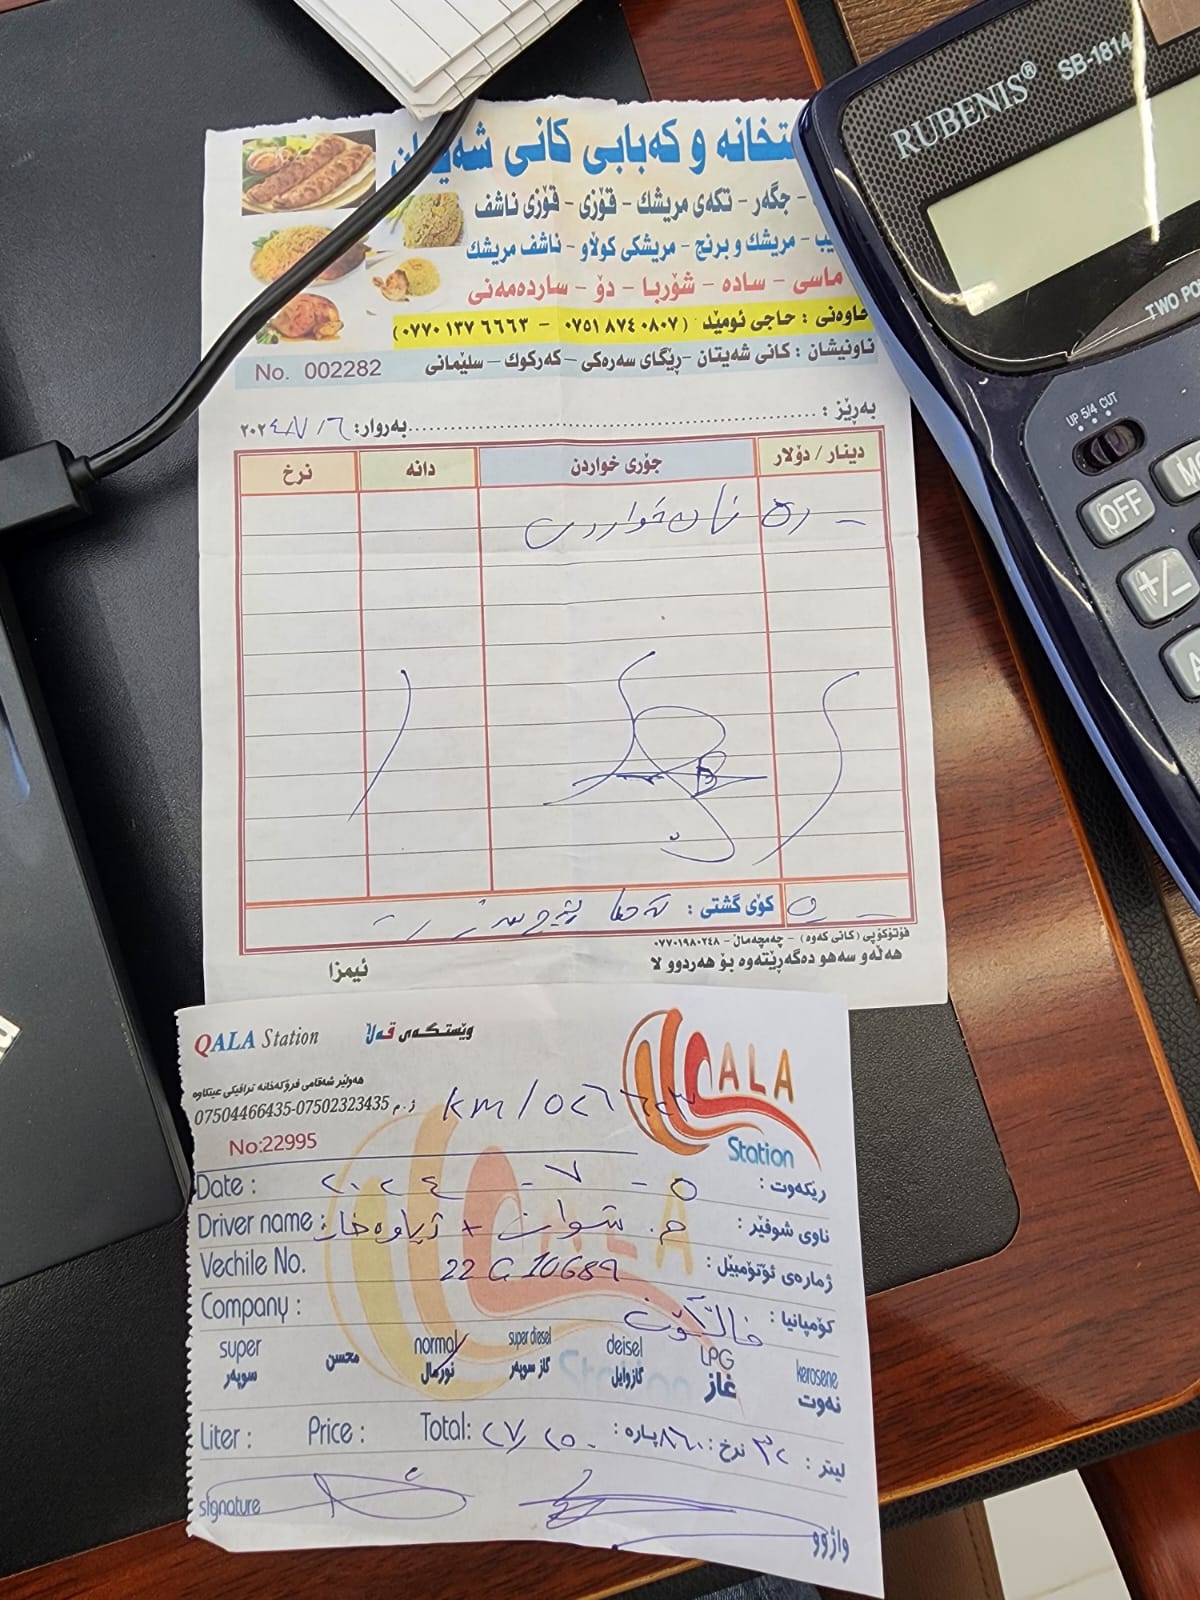 تخانە و کەبابی کانی شەیتان
- جگەر - تکەی مریشك - قۆزی - قۆزی ناشف
یب - مریشك و برنج - مریشکی کوڵاو - ناشف مریشك
ماسی - سادە - شۆربا - دۆ - ساردەمەنی
خاوەنی : حاجی ئومێد ( ٠٧٥١ ٨٧٤ ٠٨٠٧ - ٠٧٧٠ ١٣٧ ٦٦٦٣ )
ناونیشان : کانی شەیتان - ڕێگای سەرەکی - کەرکوك - سلێمانی
No. 002282
بەڕێز :
بەروار: ٢٠٢٤/٧/٦
دینار / دۆلار جۆری خواردن دانە نرخ
نان خواردن
کۆی گشتی : تەنها
فۆتۆکۆپی (کانی کەوە) - چەمچەماڵ - ٠٧٧٠١٩٨٠٢٤٨
هەڵەو سەهو دەگەڕێتەوە بۆ هەردوو لا
ئیمزا
QALA Station وێستگەی قەڵا
هەولێر شەقامی فرۆکەخانە ترافیکی عینکاوە
ژ.م 07504466435-07502323435
KM/
No:22995
QALA Station
Date : ٢٠٢٤ - ٧ - ٥ ڕێکەوت :
Driver name : م. شوان + ناوی شوفێر :
Vechile No. 22 G 10689 ژمارەی ئۆتۆمبێل :
Company : کۆمپانیا :
super محسن normal super diesel deisel LPG kerosene
سوپەر نۆرمال گاز سوپەر گازوایل غاز نەوت
Liter : Price : Total: ٢٧٫٥٢٠ پارە : ٨٦٠ نرخ : ٣٢ لیتر :
signature واژوو